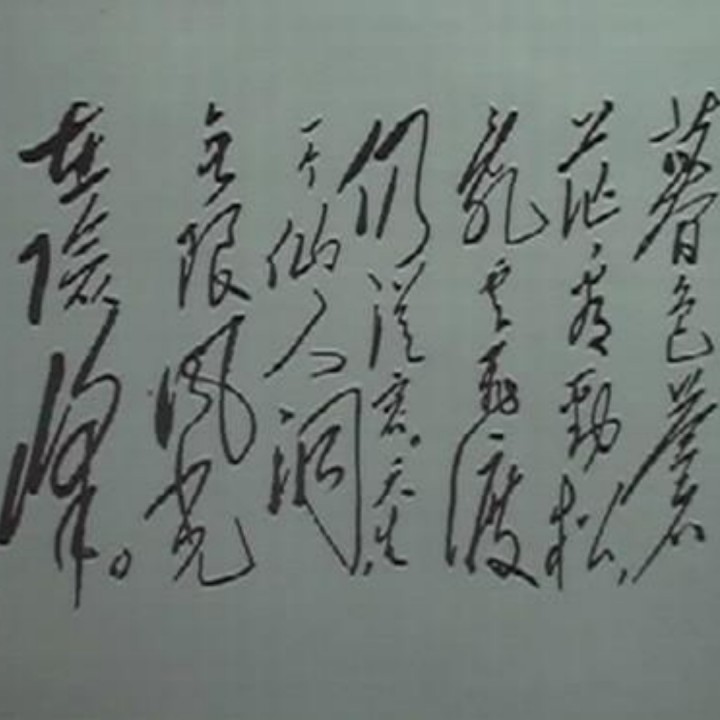 暮色苍
茫看劲松,
乱云飞渡
仍从容。天生
一个仙人洞,
无限风光
在险峰。